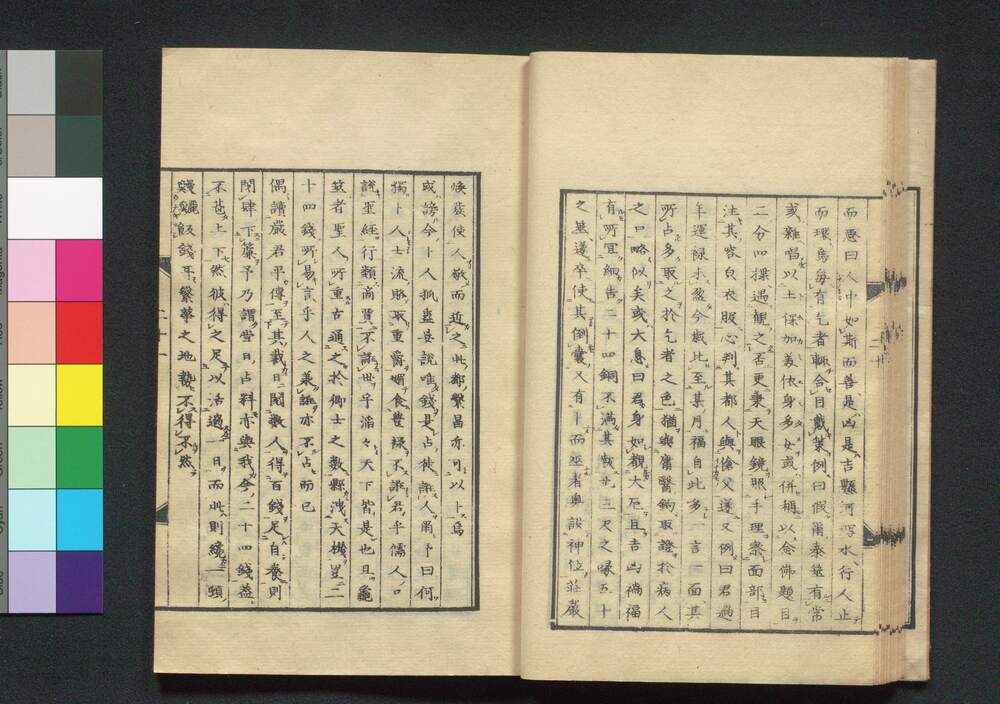 而惡曰人中如斯而善是凶是吉懸河瀉水行人止
而環焉每有乞者輙合目戴策例曰假爾泰筮有常
或雜唱以土保加美依身多女或併稱以念佛題目
二分四揲遇覯之否更秉天眼鏡照手理察面部
注其容白衣服心判其都人與傖父遂又例曰君過
年運祿未盈今歲比至某月福自此多一言一面其
所占多取之於乞者之色猶與庸醫鉤取證於病人
之口略似矣或大息曰君身如觀大厄且吉凶禍福
有所宜細告二十四銅不滿其數廿三尺之喙五十
之筮遂卒使其倒囊又有卜而巫者奧設神位莊嚴
二十
煥莊使人敬而迎之此都繁昌亦可以卜焉
或謗今卜人孤妄說唯錢是占徒誑人予曰何
獨卜人士流賂取重爵媚食豐祿不誑君乎儒人口
說聖經行類商賈不誑世乎滔々天下皆是也且龜
筮者聖人所重古通之於卿士之數縣洩天機豈二
十四錢所易言乎人之義誰亦不占而已
偶讀嚴君平傳至其裁日閱數人得百錢足自養則
閉肆下簾予乃謂當日占料亦與我今二十四錢蓋
不甚上下然彼得之足以活過一日而此則纔一頓
鰻鱺飯錢耳繁華之地勢不得不然
二十一